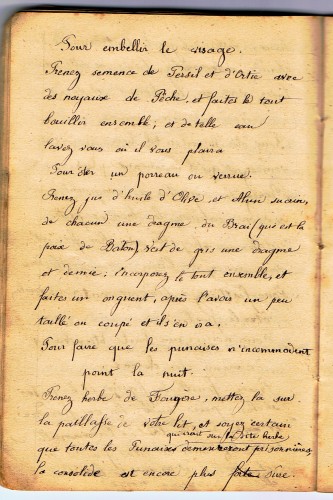 Pour embellir le visage.
Prenez semence de Persil et d'Ortie avec
des noyaux de Pêche, et faites le tout
bouillir ensemble; et de telle eau
lavez vous où il vous plaira
Pour ôter un porreau ou verrue.
Prenez jus d'huile d'Olive, et Alun sucain,
de chacun une dragme, du Brai (qui est la
poix de Baton), vert de gris une dragme
et demie: incorporez le tout ensemble, et
faites un onguent, après l'avoir un peu
taillé ou coupé et il s'en ira.
Pour faire que les punaises n'incommodent
point la nuit.
Prenez herbe de Fougère, mettez la sur
la paillasse de votre lit, et soyez certain
que toutes les Punaises qui iront sur la dite herbe demeureront prisonnières
la consolede est encore plus sûre.